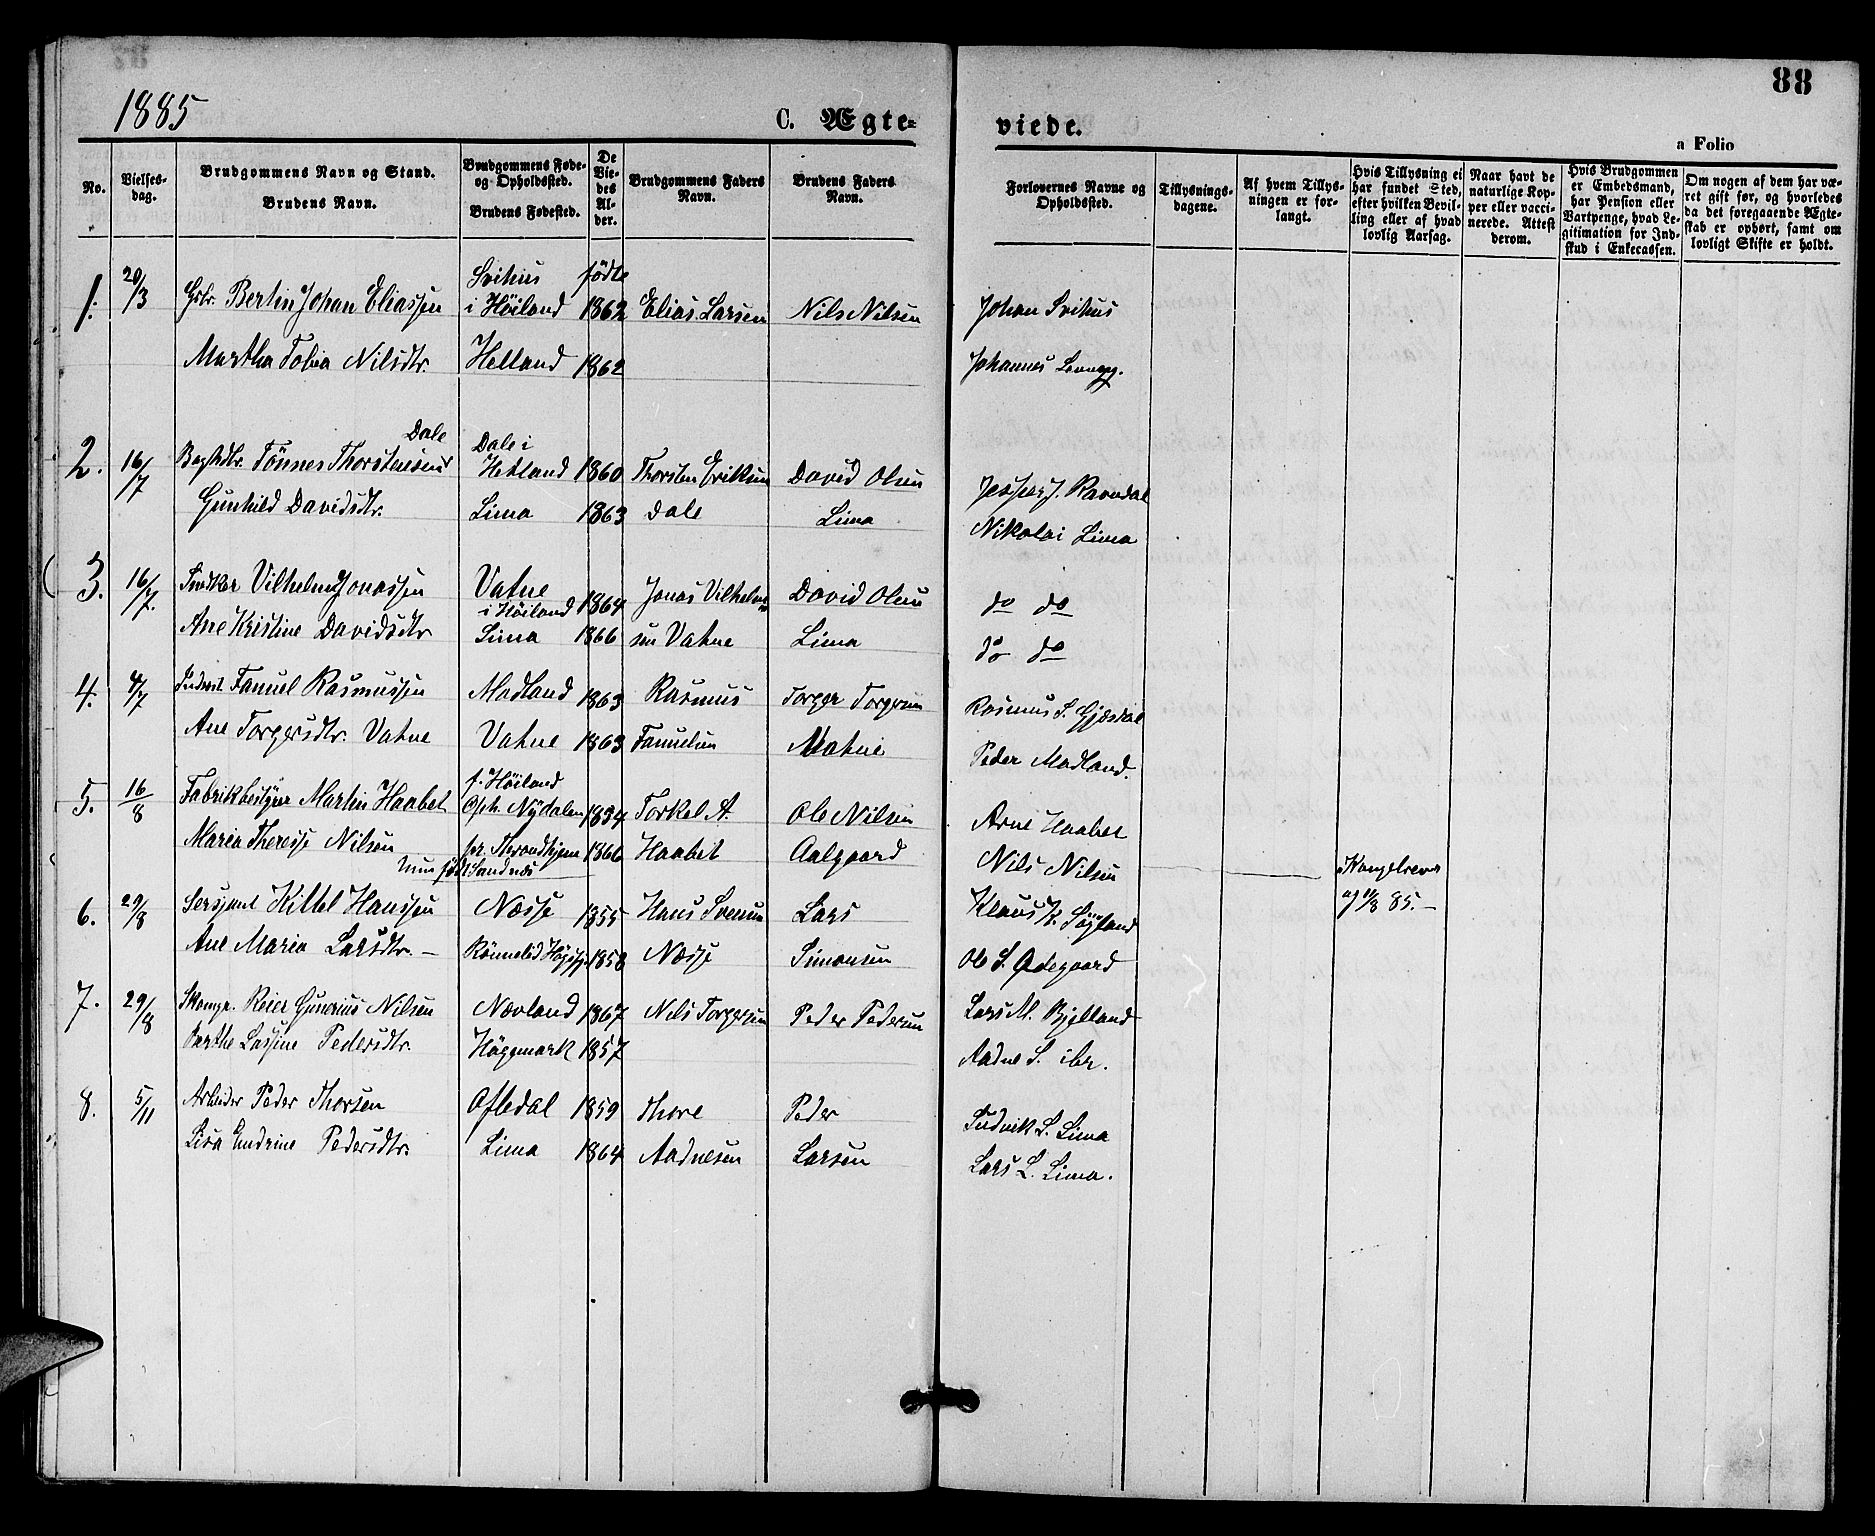 1885
C. Ægteviede.
88
a Folio
No.
Vielsesdag.
Brudgommens Navn og Stand.
Brudens Navn.
Brudgommens Føde- og Opholdssted.
Brudens Fødested.
De Viedes Alder.
Brudgommens Faders Navn.
Brudens Faders Navn.
Forlovernes Navne og Opholdssted.
Tillysningsdagene.
Af hvem Tillysningen er forlangt.
Hvis Tillysning ei har fundet Sted, efter hvilken Bevilling eller af hvad lovlig Aarsag.
Naar havt de naturlige Kopper eller vaccinerede. Attest derom.
Hvis Brudgommen er Embedsmand, har Pension eller Vartpenge, hvad Legitimation for Indskud i Enkecassen.
Om nogen af dem har været gift før, og hvorledes da det foregaaende Ægteskab er ophørt, samt om lovligt Skifte er holdt.
Svihus fødte
1. 20/3 Bertin Johan Eliassen i Höiland 1862 Elias Larsen Nils Nilsen Johan Svihus
Martha Tobia Nilsdtr. Helland 1862 Johannes
Dale Dale i
2. 16/7 Tönnes Thorstensen Hetland 1860 Thorsten Eriksen David Olsen Jesper J. Ravndal
Gunhild Davidsdtr. Lima 1863 Dale Lima Nikolai Lima
3. 16/7. Snedker Vilhelm Jonassen Vatne i Höiland 1864 Jonas Vilhelm David Olsen do do
Ane Kristine Davidsdtr Lima 1866 sen Vatne Lima do do
4. 4/7 Samuel Rasmussen Madland 1863 Rasmus Torger Torgersen Rasmus S. Gjesdal
Ane Torgersdtr. Vatne Vatne 1863 Samuelsen Vatne Peder Madland.
f. Höiland
5. 16/8 Fabrikbestyrer Martin Haabet Oph. Nydalen 1834 Torkel A. Ole Nilsen Arne Haabet
Maria Therese Nilsen pr. Throndhjem 1866 Haabet Aalgaard Nils Nilsen Kongebrev
født Sandnæs
6. 29/8 Sersjant Kittel Hanssen Næsse 1855 Hans Svensen Lars Klaus K. af 11/8 85.
Ane Maria Larsdtr. 1858 Næsse Simonsen Ole S. Ødegaard
7. 29/8 Reier Gunerius Nilsen Nævland 1867 Nils Torgersen Peder Pedersen Lars M. Bjelland
Berthe Lassine Pedersdtr. Häggmark 1857 Aadne S. ibr.
8. 5/11 Arbeider Peder Thorsen Oftedal 1859 Thore Peder Ludvik L. Lima
Lisa Endrine Pedersdtr. Lima 1864 Aadnesen Larsen Lars L. Lima.